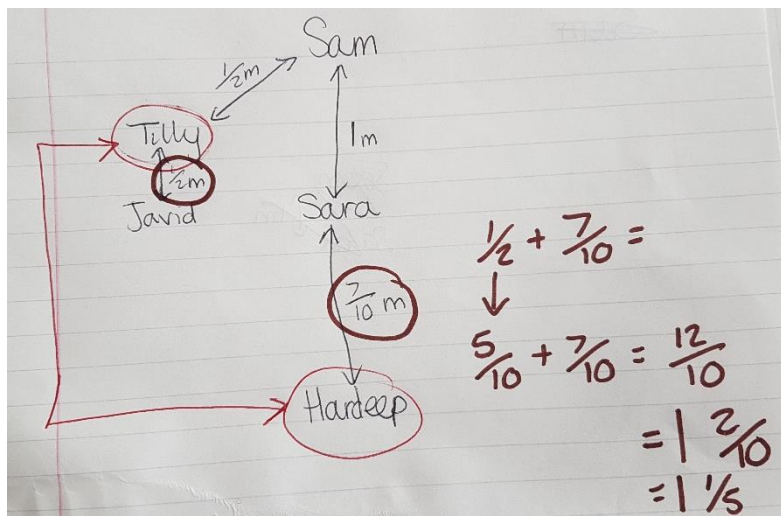 Sam
1/2 m
Tilly
1m
1/2 m
Javid
Sara
7/10 m
Hardeep
1/2 + 7/10 =
5/10 + 7/10 = 12/10
= 1 2/10
= 1 1/5